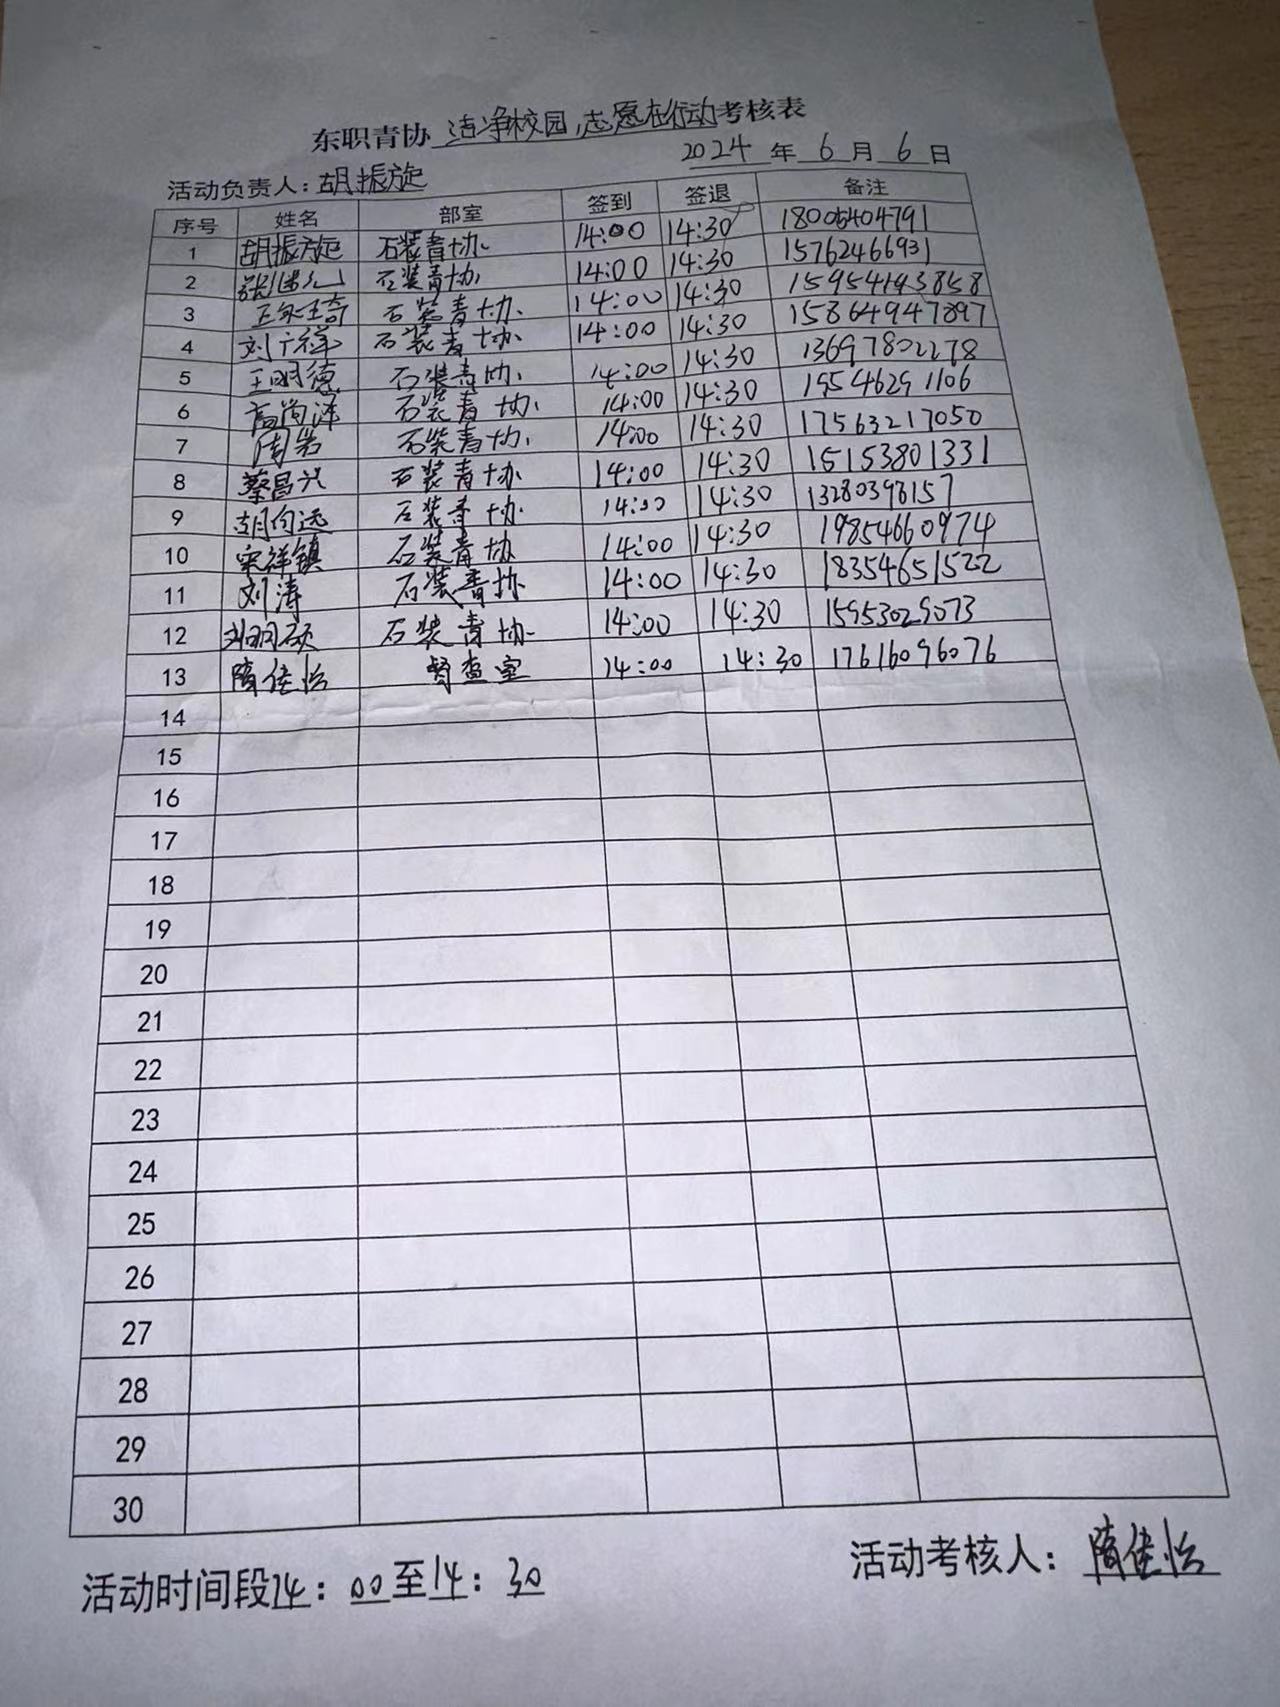 东职青协 洁净校园,志愿在行动考核表
2024 年 6 月 6 日
活动负责人: 胡振旋
序号 姓名 部室 签到 签退 备注
1 胡振旋 石装青协 14:00 14:30 18005404791
2 石装青协 14:00 14:30 15762466931
3 石装青协 14:00 14:30 15954193858
4 刘广祥 石装青协 14:00 14:30 15864947897
5 王明德 石装青协 14:00 14:30 13697802278
6 高尚泽 石装青协 14:00 14:30 19546291106
7 周岩 石装青协 14:00 14:30 17563217050
8 蔡昌兴 石装青协 14:00 14:30 15153801331
9 胡向远 石装青协 14:00 14:30 13280398157
10 宋祥镇 石装青协 14:00 14:30 19854660974
11 刘涛 石装青协 14:00 14:30 18354651522
12 刘明硕 石装青协 14:00 14:30 15953029073
13 隋佳怡 督查室 14:00 14:30 17616096076
14
15
16
17
18
19
20
21
22
23
24
25
26
27
28
29
30
活动时间段14:00至14:30
活动考核人: 隋佳怡